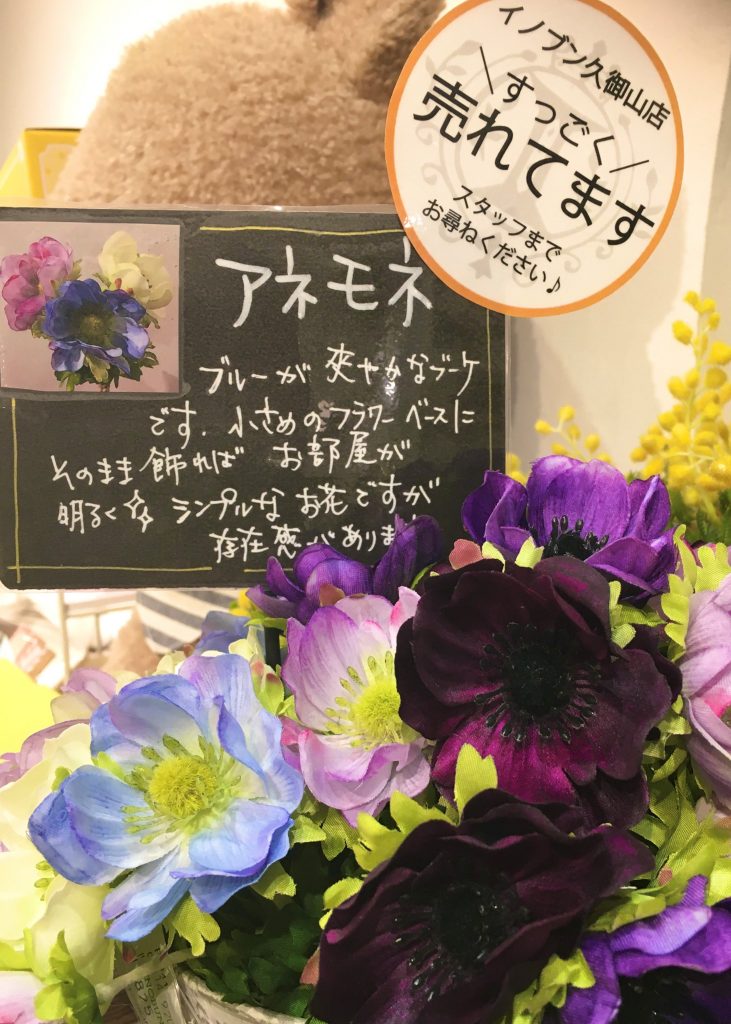 イノブン久御山店
\すっごく/
売れてます
スタッフまで
お尋ねください♪
アネモネ
ブルーが爽やかなブーケ
です。小さめのフラワーベースに
そのまま飾れば お部屋が
明るく シンプルな お花ですが
存在感がありま